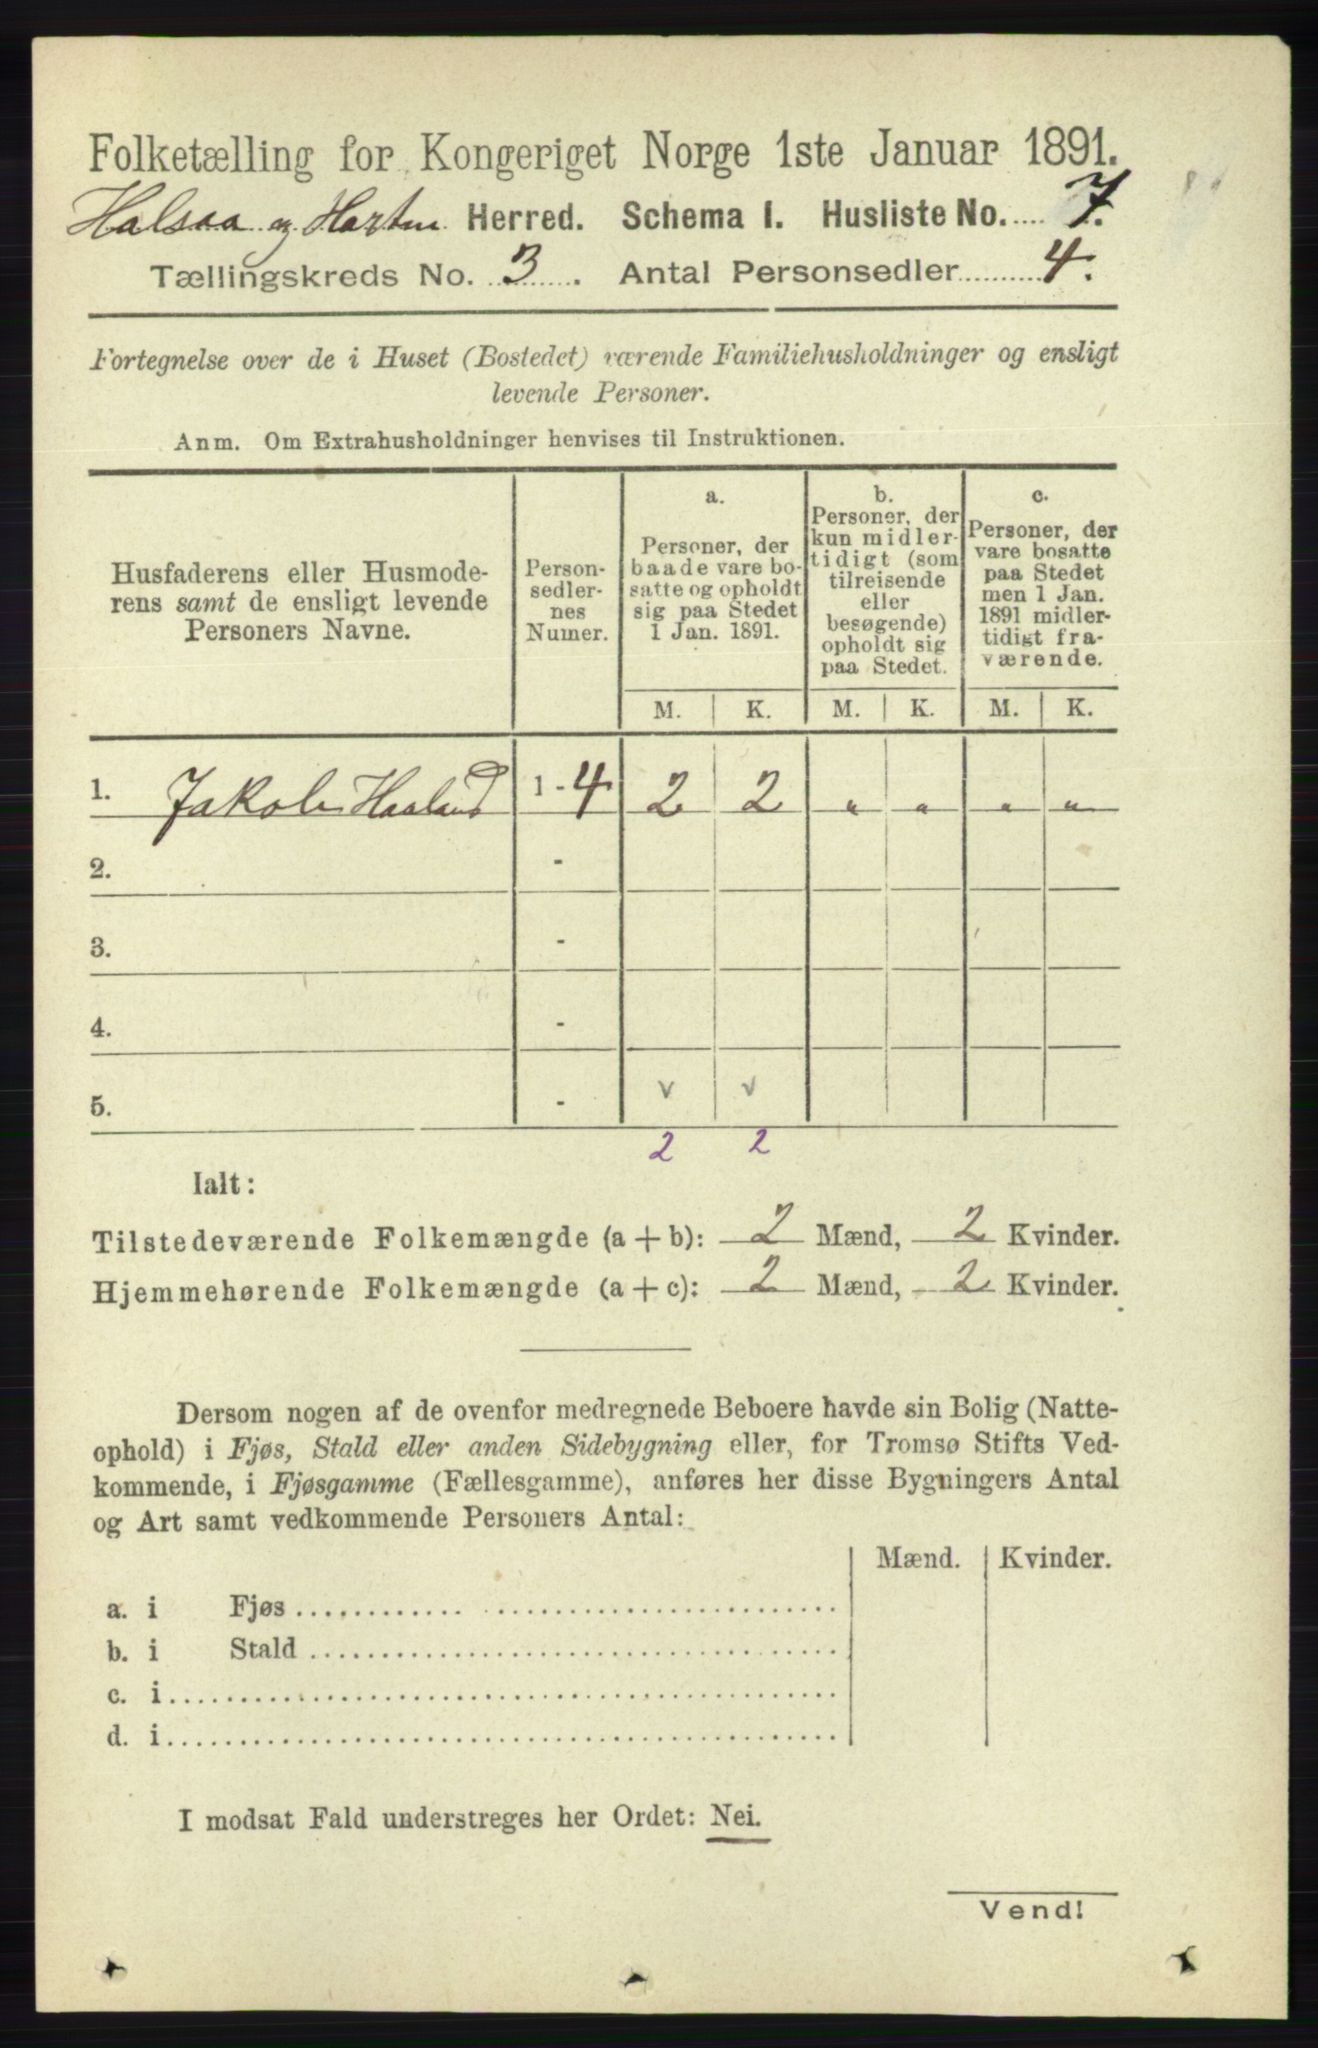 Folketælling for Kongeriget Norge 1ste Januar 1891.
Halsaa og Hartm Herred. Schema I. Husliste No. 7.
Tællingskreds No. 3. Antal Personsedler 4.
Fortegnelse over de i Huset (Bostedet) værende Familiehusholdninger og ensligt
levende Personer.
Anm. Om Extrahusholdninger henvises til Instruktionen.
Husfaderens eller Husmode-
rens samt de ensligt levende
Personers Navne.
Person-
sedler-
nes
Numer.
a.
Personer, der
baade vare bo-
satte og opholdt
sig paa Stedet
1 Jan. 1891.
b.
Personer, der
kun midler-
tidigt (som
tilreisende
eller
besøgende)
opholdt sig
paa Stedet.
c.
Personer, der
vare bosatte
paa Stedet
men 1 Jan.
1891 midler-
tidigt fra-
værende.
M. K. M. K. M. K.
1. Jakob Haaland 1 - 4 2 2 " " " "
2. -
3. -
4. -
5. - v v
2 2
Ialt:
Tilstedeværende Folkemængde (a + b): 2 Mænd, 2 Kvinder.
Hjemmehørende Folkemængde (a + c): 2 Mænd, 2 Kvinder.
Dersom nogen af de ovenfor medregnede Beboere havde sin Bolig (Natte-
ophold) i Fjøs, Stald eller anden Sidebygning eller, for Tromsø Stifts Ved-
kommende, i Fjøsgamme (Fællesgamme), anføres her disse Bygningers Antal
og Art samt vedkommende Personers Antal:
Mænd. Kvinder.
a. i Fjøs
b. i Stald
c. i
d. i
I modsat Fald understreges her Ordet: Nei.
Vend!